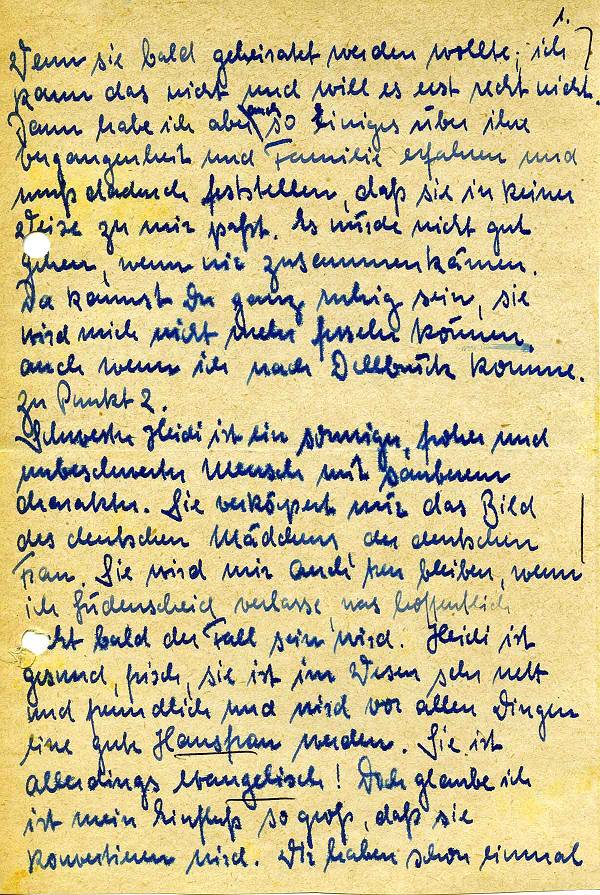 1.
Wenn sie bald geheiratet werden wollte; ich
kann das nicht und will es erst recht nicht.
Dann habe ich aber auch so Einiges über ihre
Vergangenheit und Familie erfahren und
muß dadurch feststellen, daß sie in keiner
Weise zu mir paßt. Es würde nicht gut
gehen, wenn wir zusammenkämen.
Da kannst Du ganz ruhig sein, sie
wird mich nicht mehr fesseln können,
auch wenn ich nach Dellbrück komme.
zu Punkt 2.
Schwester Heidi ist ein sonniger, froher und
unbeschwerter Mensch mit sauberem
Charakter. Sie verkörpert mir das Bild
des deutschen Mädchens, der deutschen
Frau. Sie wird mir auch treu bleiben, wenn
ich Lüdenscheid verlasse, was hoffentlich
nicht bald der Fall sein wird. Heidi ist
gesund, frisch, sie ist im Wesen sehr nett
und freundlich und wird vor allen Dingen
eine gute Hausfrau werden. Sie ist
allerdings evangelisch! Doch glaube ich
ist mein Einfluß so groß, daß sie
konvertieren wird. Wir haben schon einmal